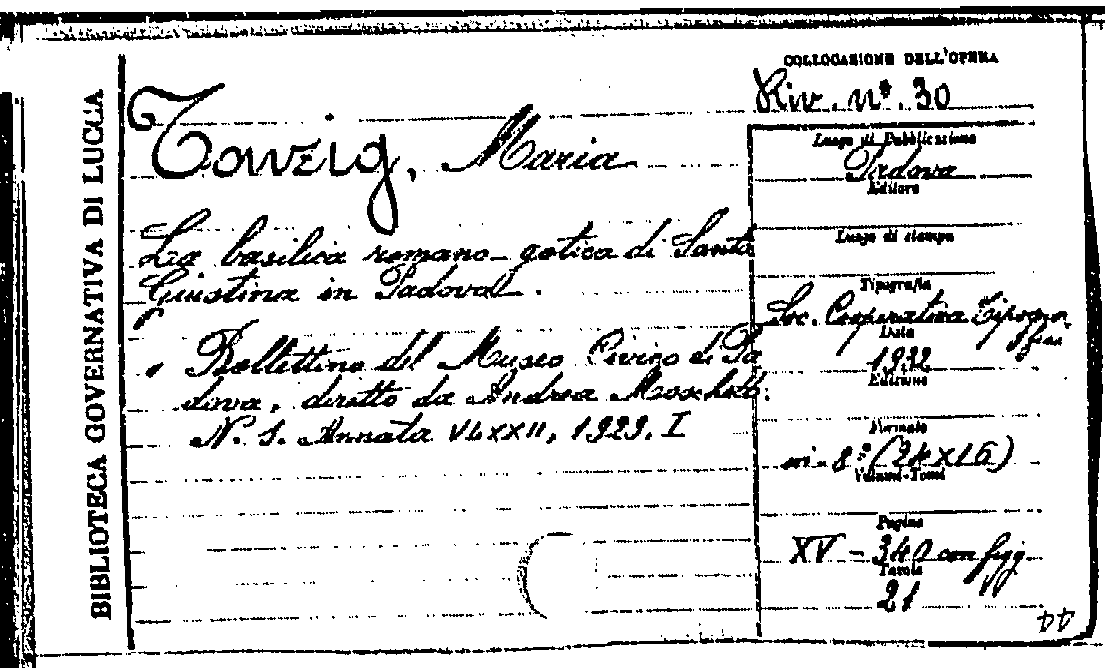 BIBLIOTECA GOVERNATIVA DI LUCCA
Tonzig, Maria
La basilica romano-gotica di Santa
Giustina in Padova.
" Bollettino del Museo Civico di Pa
dova, diretto da Andrea Moschetti.
N. S. Annata VI XXII, 1929. I
COLLOCAZIONE DELL'OPERA
Riv. n°. 30
Luogo di Pubblicazione
Padova
Editore
Luogo di stampa
Tipografia
Soc. Cooperativa Tipogra
fica
Data
1932
Edizione
Formato
in-8° (24x16)
Volumi-Tomi
Pagine
XV - 340 con figg.
Tavole
21